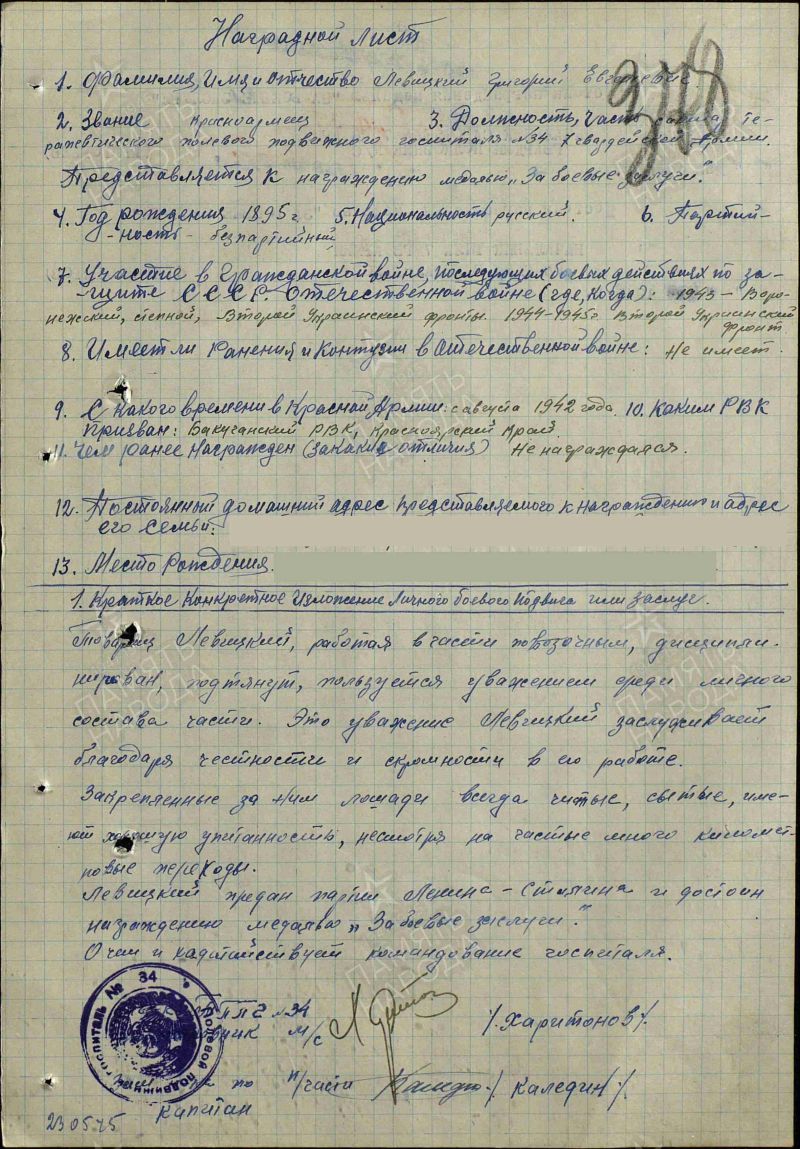 Наградной лист
1. Фамилия, Имя и отчество Левицкий Григорий
2. Звание Красноармеец 3. Должность, часть те-
рапевтического полевого подвижного госпиталя №34 7 гвардейской Армии.
Представляется к награждению медалью „За боевые заслуги."
4. Год рождения 1895 г. 5. Национальность русский. 6. Партий-
-ность - безпартийный
7. Участие в Гражданской войне, последующих боевых действиях по за-
щите СССР. Отечественной войне (где, когда): 1943 - Воро-
нежский, степной, Второй Украинский фронты. 1944-1945г Второй Украинский
фронт.
8. Имеет ли ранения и контузии в отечественной войне: Не имеет.
9. С какого времени в Красной Армии: с августа 1942 года. 10. Каким РВК
призван: РВК, Красноярский Край
11. Чем ранее награжден (за какие отличия) Не награждался.
12. Постоянный домашний адрес представляемого к награждению и адрес
его семьи:
13. Место рождения.
1. Краткое конкретное изложение личного боевого подвига или заслуг.
Товарищ Левицкий, работая в части повозочным, дисципли-
нирован, подтянут, пользуется уважением среди личного
состава части. Это уважение Левицкий заслуживает
благодаря честности и скромности в его работе.
Закрепленные за ним лошади всегда чистые, сытые, име-
ют хорошую упитанность, несмотря на частые много километ-
ровые переходы.
Левицкий предан партии Ленина - Сталина и достоин
награждению медалью „За боевые заслуги."
О чем и хадатайствует командование госпиталя.
ТППГ №34
м/с /Харитонов/.
по п/части /Каледин/.
Капитан
23 05 45
ПОЛЕВОЙ ПОДВИЖНОЙ ГОСПИТАЛЬ № 34
ПАМЯТЬ НАРОДА